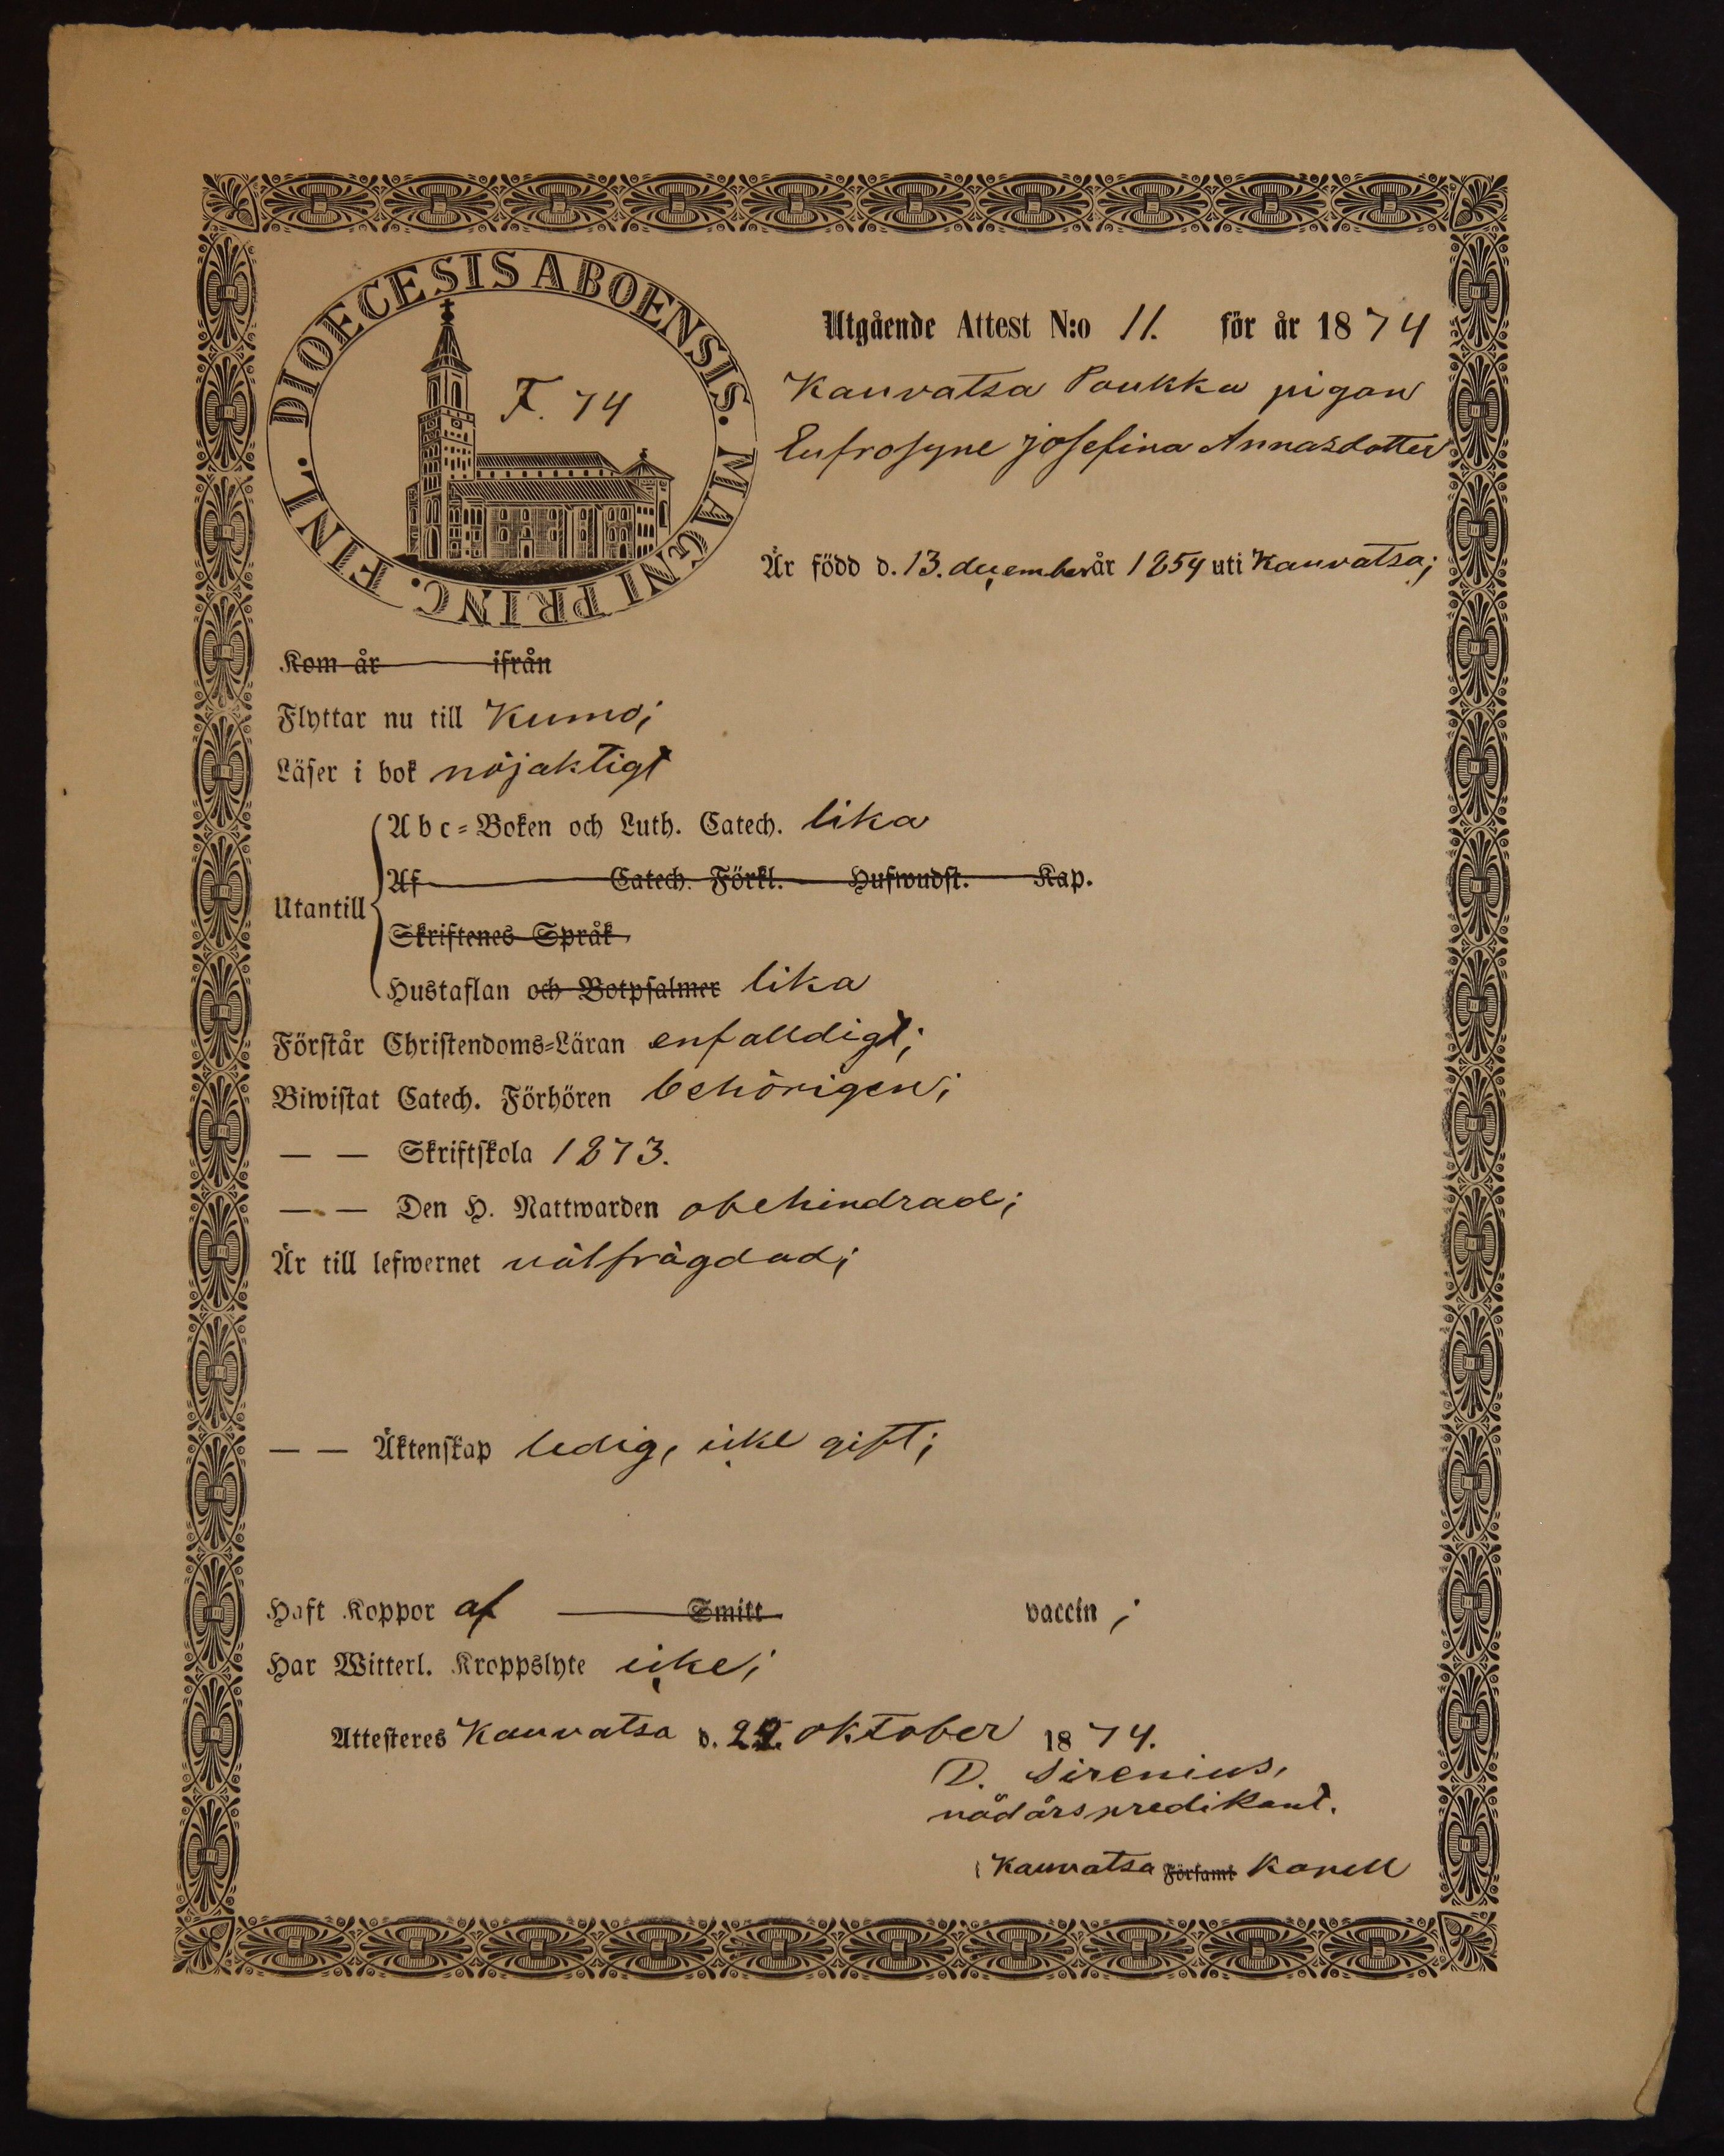 DIOECESIS ABOENSIS. MAGNI PRINC. FINL.
F. 74
Utgående Attest N:o 11. för år 1874
Kauvatsa Poukka pigan
Eufrosyne josefina Annasdotter
Är född d. 13. december år 1854 uti Kauvatsa;
Kom år ifrån
Flyttar nu till Kumo;
Läser i bok nöjaktigt
Utantill
A b c-Boken och Luth. Catech. lika
Af Catech. Förkl. Hufwudst. Kap.
Skriftenes Språk
Hustaflan och Botpsalmer lika
Förstår Christendoms-Läran enfalldigt;
Biwistat Catech. Förhören behörigen;
— — Skriftskola 1873.
— — Den H. Nattwarden obehindrad;
Är till lefwernet välfrägdad;
— — Äktenskap ledig, icke gift;
Haft Koppor af Smitt vaccin;
Har Witterl. Kroppslyte icke;
Attesteres Kauvatsa d. oktober 1874.
D. Sirenius,
nådårspredikant.
i Kauvatsa Församl Kapell